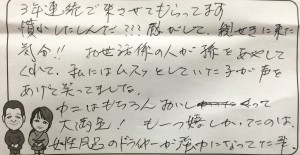 3年連続で来させてもらってます
懐かしたしんだ??? 豚がして、親せきに来た
気分!! お世話係の人が孫をあやして
くれて、私にはムスッとしていた子が声を
あげて笑ってましたな。
カニはもちろんおいしくって
大満足! もう一つ嬉しかったのは、
女性風呂のドライヤーが強中になってた事。